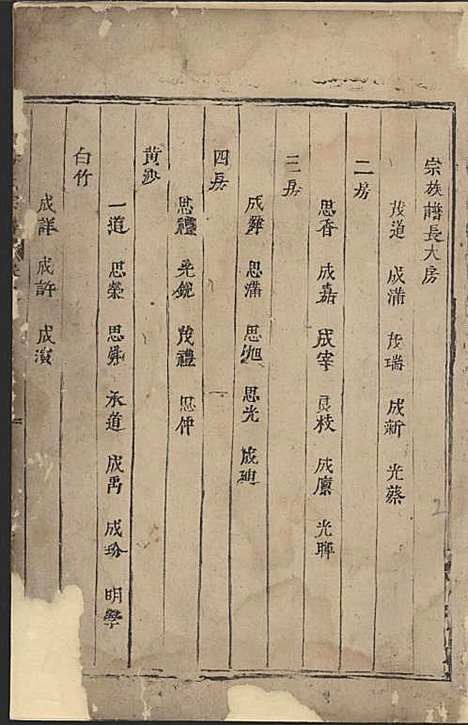 宗族譜長大房
茂道 成滿 茂瑞 成新 光蔡
二房
思香 成嘉 成宰 良枝 成廪 光聯
三房
成舜 思滿 思旭 思光 成璉
四房
思禮 光銳 茂禮 思仲
黃沙
一道 思榮 思舜 承道 成禹 成玢 明學
白竹
成詳 成許 成濱
2